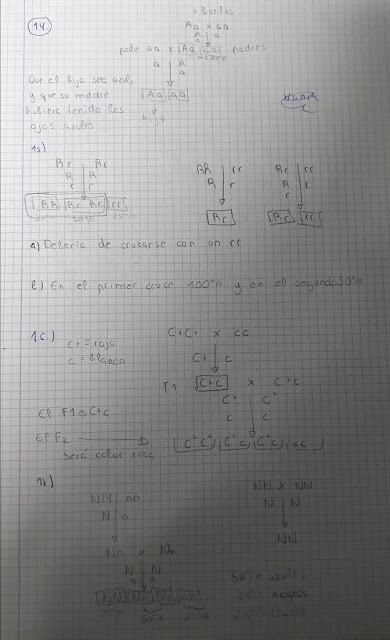 14.
abuelos
Aa x aa
A a
a
padre aa x Aa aa padres
madre
a A
a
Que el hijo sea azul,
y que su madre
hubiera tenido los
ojos azules
Aa aa
hijo
15)
Rr Rr
R R
r r
RR Rr Rr rr
50% 25%
RR rr
R r
Rr
Rr rr
R r
r
Rr rr
a) Debería de cruzarse con un rr
b) En el primer cruce 100% y en el segundo 50%
16)
C+ = rojo
c = blanco
C+C+ x cc
C+ c
F1 C+c x C+c
C+ C+
c c
El F1 es C+c
El F2
será color rosa
C+C+ C+c C+c cc
17)
NN nn
N n
Nn x Nn
N N
n n
NN Nn Nn nn
25% 50% 25%
NN x NN
N N
NN
50%
25% negras
25%